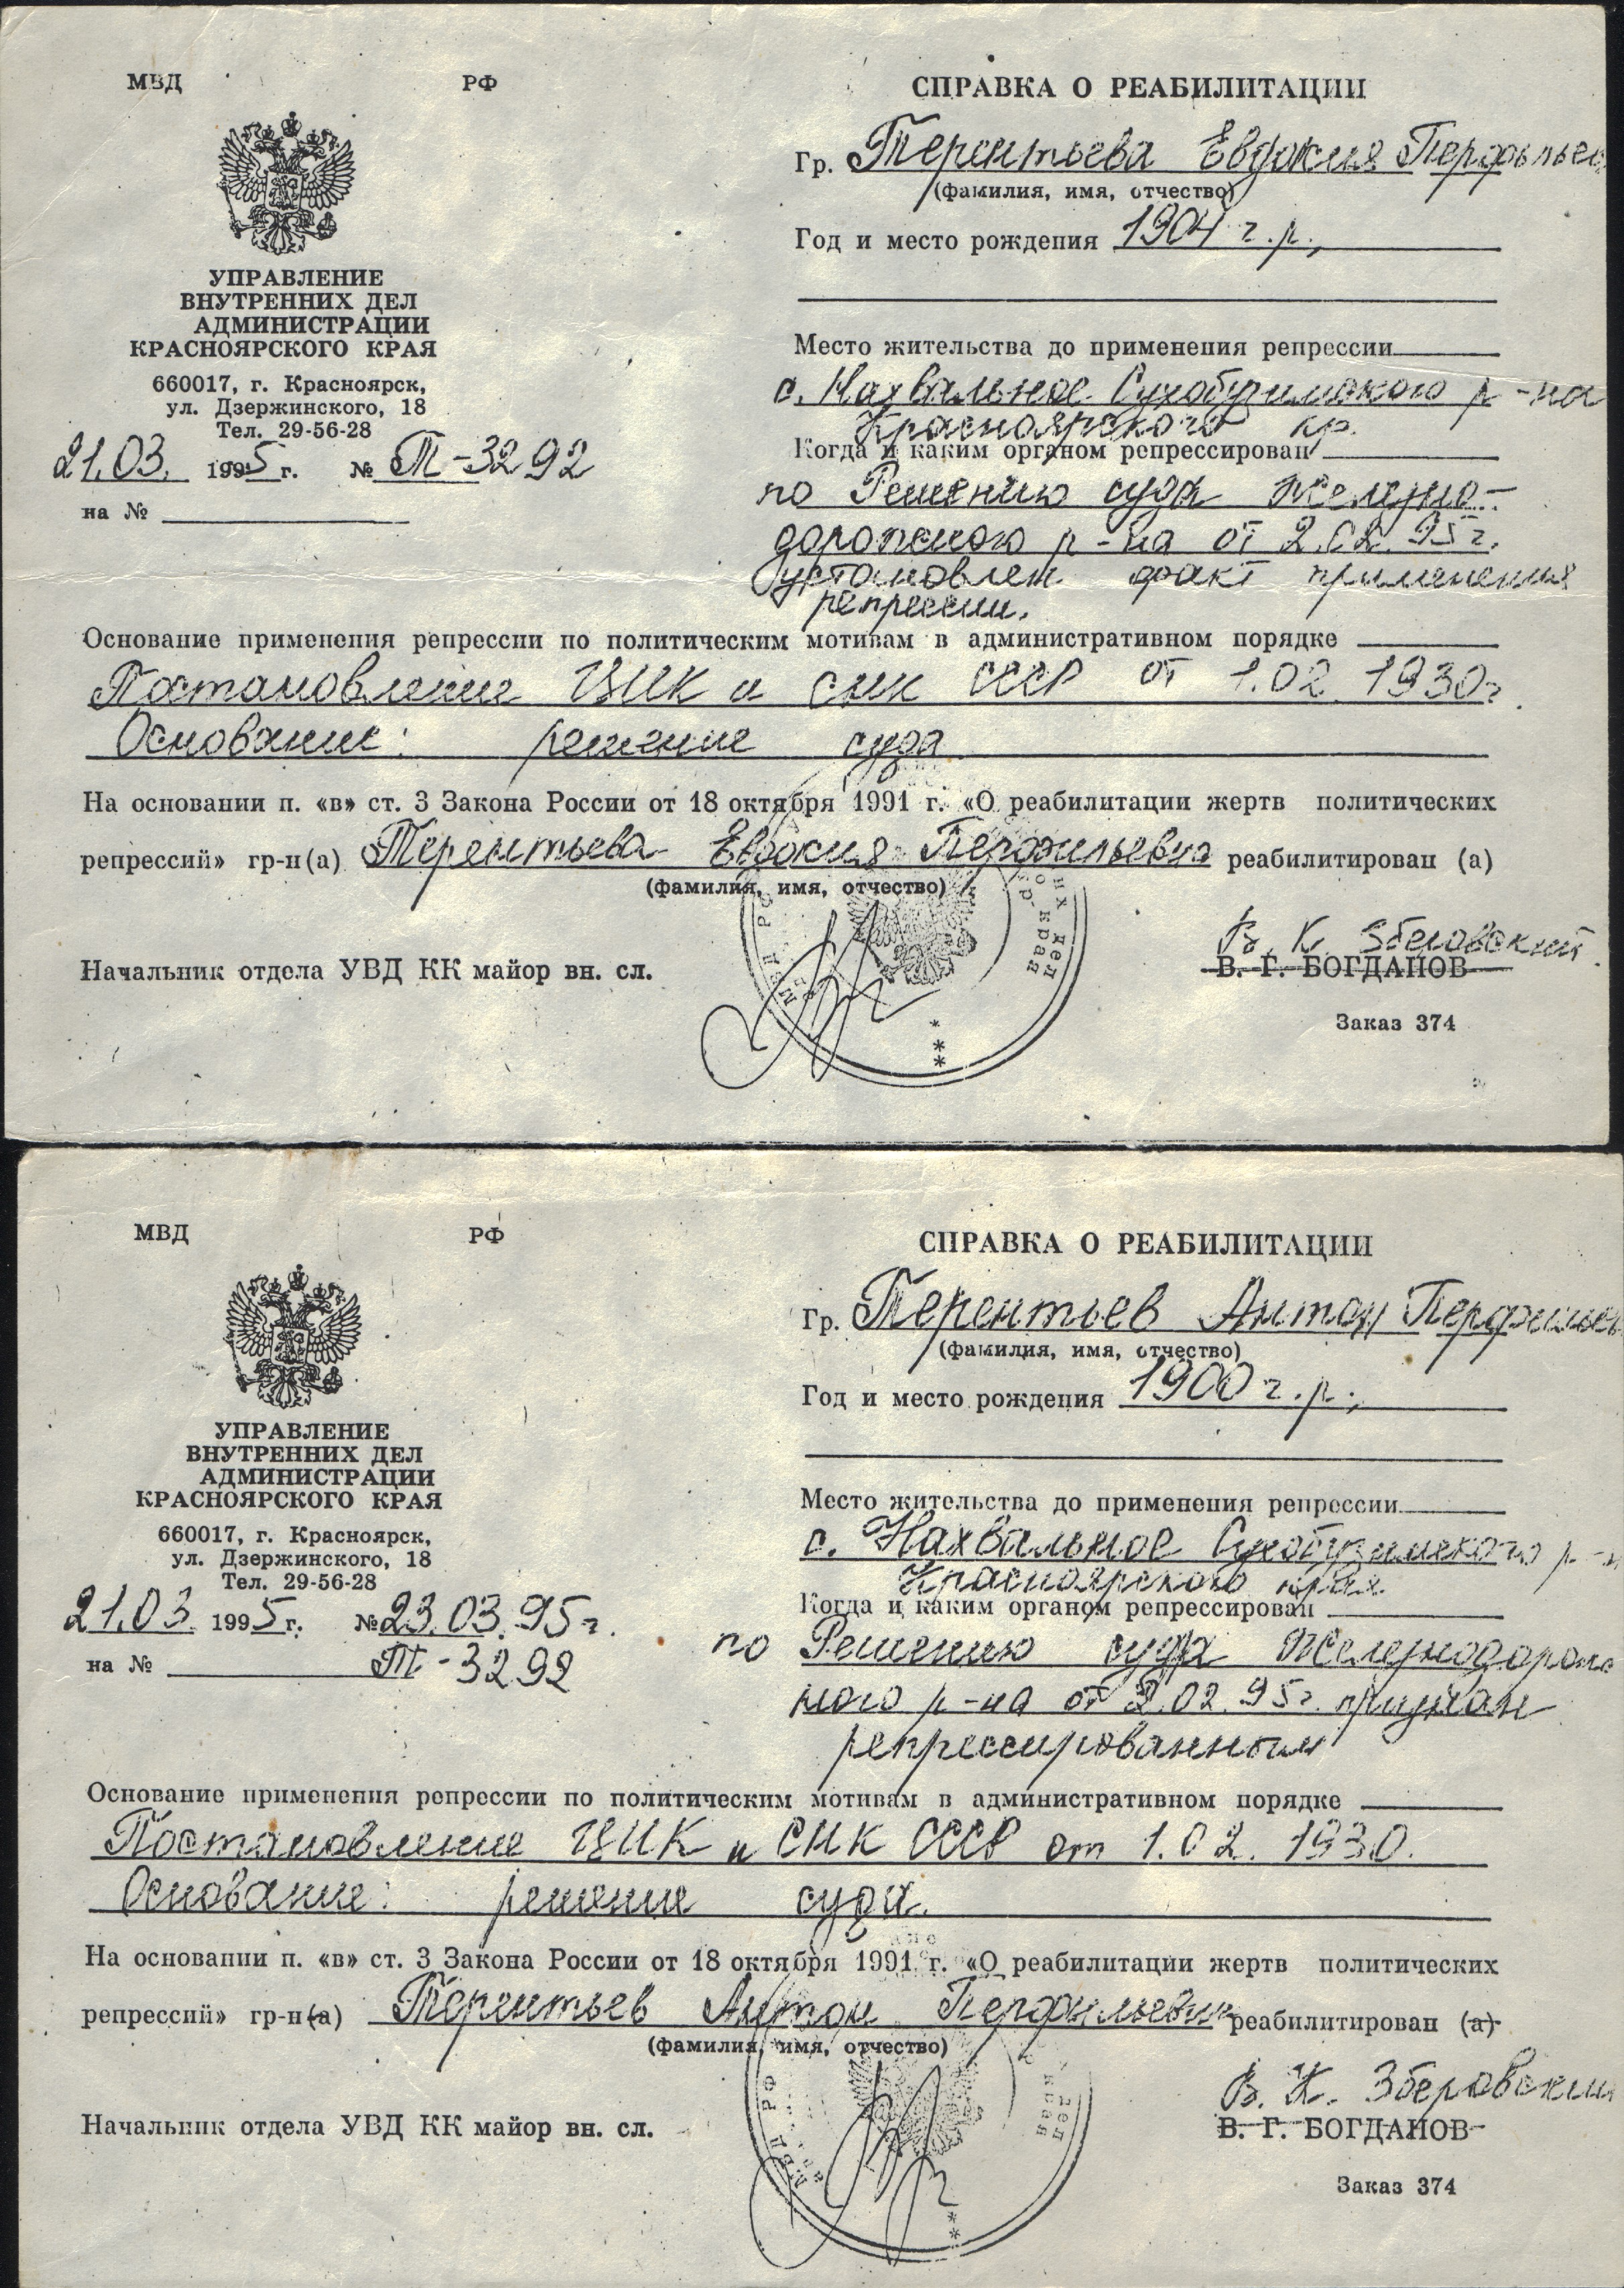 МВД РФ
УПРАВЛЕНИЕ
ВНУТРЕННИХ ДЕЛ
АДМИНИСТРАЦИИ
КРАСНОЯРСКОГО КРАЯ
660017, г. Красноярск,
ул. Дзержинского, 18
Тел. 29-56-28
21.03. 1995 г. № Т-3292
на №
СПРАВКА О РЕАБИЛИТАЦИИ
Гр. Терентьева Евдокия
(фамилия, имя, отчество)
Год и место рождения 1904 г.р.,
Место жительства до применения репрессии
с. Нахвальное Сухобузимского р-на
Красноярского кр.
Когда и каким органом репрессирован
по Решению суда Железно-
дорожного р-на от 2.02.95г.
установлен факт применения
репрессии.
Основание применения репрессии по политическим мотивам в административном порядке
Постановление ЦИК и СНК СССР от 1.02.1930г.
Основание: решение суда
На основании п. «в» ст. 3 Закона России от 18 октября 1991 г. «О реабилитации жертв политических
репрессий» гр-н(а) Терентьева Евдокия Перфильевна реабилитирован (а)
(фамилия, имя, отчество)
В. К.
Начальник отдела УВД КК майор вн. сл. В. Г. БОГДАНОВ
Заказ 374
МВД РФ
УПРАВЛЕНИЕ
ВНУТРЕННИХ ДЕЛ
АДМИНИСТРАЦИИ
КРАСНОЯРСКОГО КРАЯ
660017, г. Красноярск,
ул. Дзержинского, 18
Тел. 29-56-28
21.03. 1995 г. № 23.03.95г.
на № Т-3292
СПРАВКА О РЕАБИЛИТАЦИИ
Гр. Терентьев Антон Перфильев
(фамилия, имя, отчество)
Год и место рождения 1900 г.р.,
Место жительства до применения репрессии
с. Нахвальное Сухобузимского р-н
Красноярского края
Когда и каким органом репрессирован
по Решению суда Железнодорож
ного р-на от 2.02.95г. признан
репрессированным
Основание применения репрессии по политическим мотивам в административном порядке
Постановление ЦИК и СНК СССР от 1.02.1930.
Основание: решение суда.
На основании п. «в» ст. 3 Закона России от 18 октября 1991 г. «О реабилитации жертв политических
репрессий» гр-н(а) Терентьев Антон Перфильевич реабилитирован (а)
(фамилия, имя, отчество)
В. К. Зберовский
Начальник отдела УВД КК майор вн. сл. В. Г. БОГДАНОВ
Заказ 374